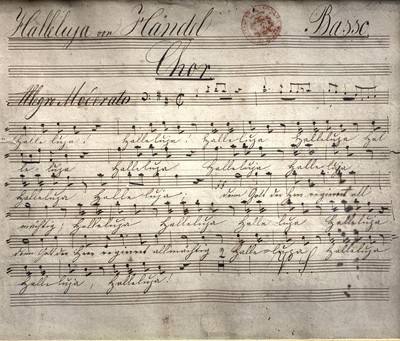 Halleluja von Händel Basso.
Chor
Allgro Moderato
Halle luja! Halleluja! Halleluja Halleluja Hal
le luja Halleluja Halleluja Halleluja
Halleluja Halle luja! denn Gott der Herr regieret all
mächtig, Halleluja Halleluja Halle luja Halleluja
denn Gott der Herr regieret allmächtig 2 Halleluja
Halle luja, Halleluja!